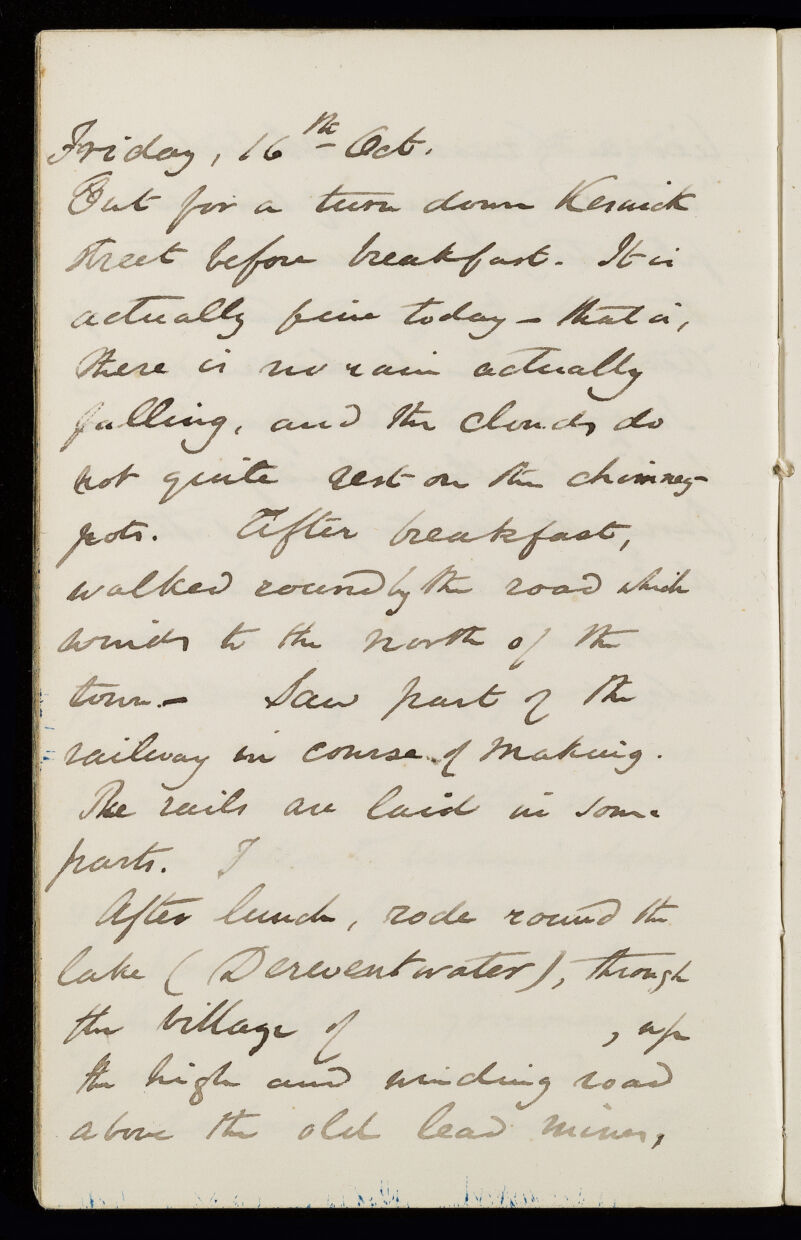 Friday, 16th Oct.
Out for a turn down Keswick
street before breakfast. It is
actually fine today – that is,
there is no rain actually
falling, and the clouds do
not quite rest on the chimney-
pots. After breakfast,
walked round by the road which
winds to the north of the
town. – Saw part of the
railway in course of making.
The rails are laid in some
parts. I
After lunch, rode round the
lake (Derwentwater), through
the village of , up
the high and winding road
above the old lead mines,